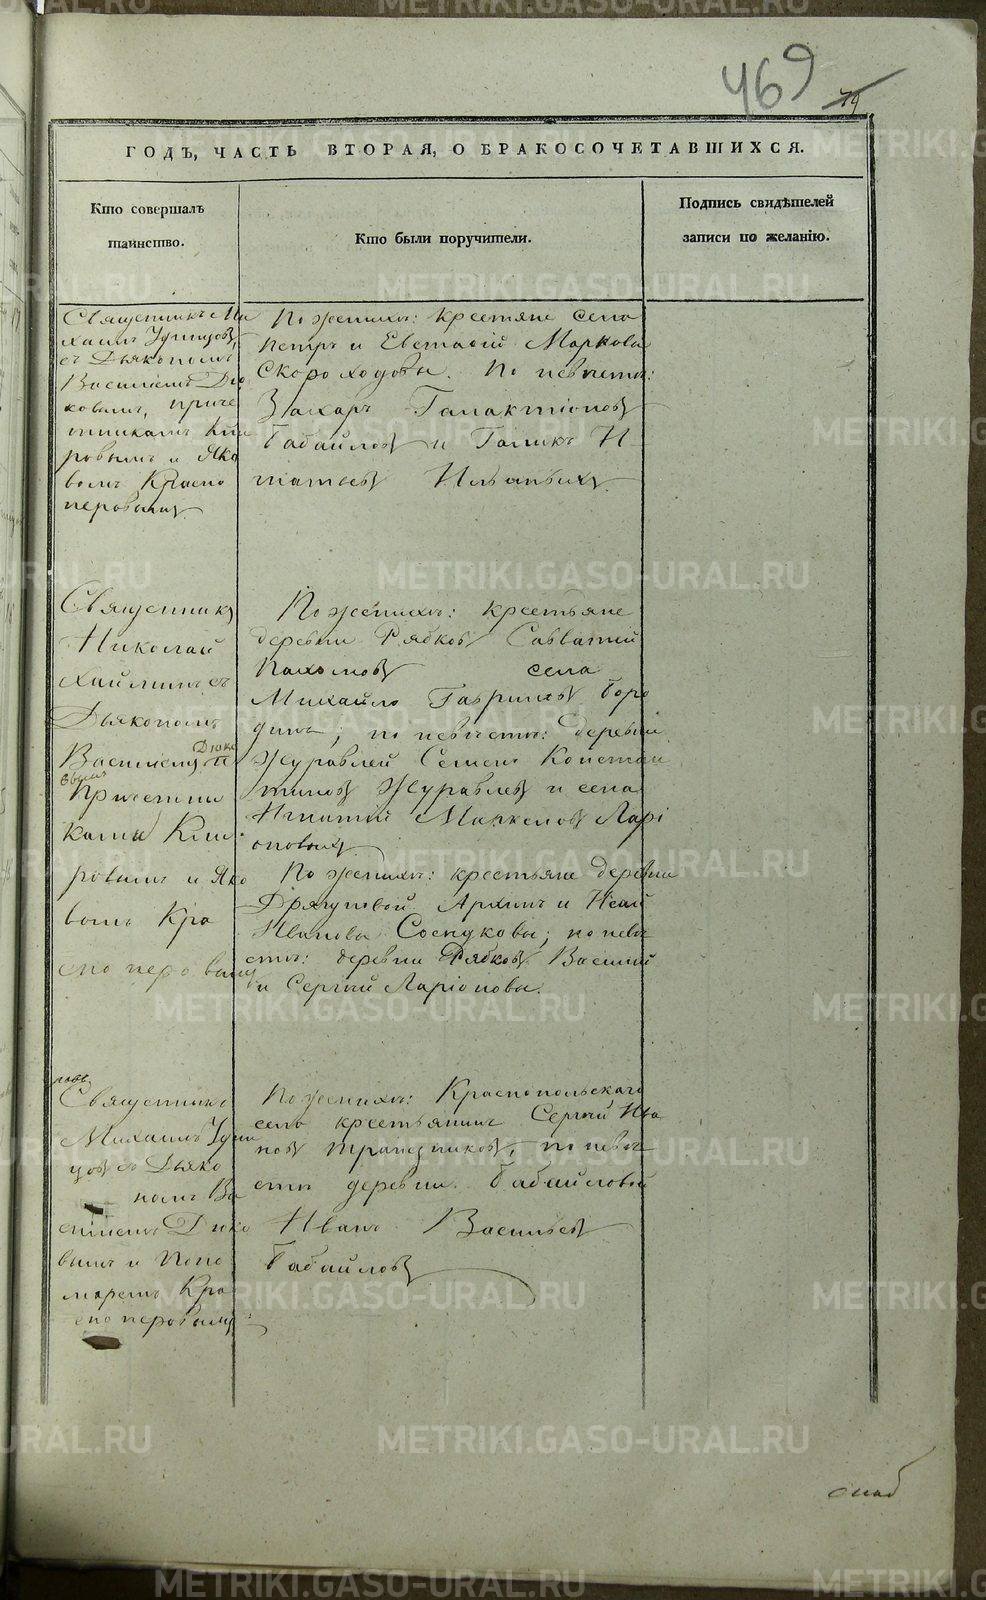 469
79
ГОДЪ, ЧАСТЬ ВТОРАЯ, О БРАКОСОЧЕТАВШИХСЯ.
Кто совершалъ
таинство.
Кто были поручители.
Подпись свидѣтелей
записи по желанію.
Священникъ Ми
хаилъ
съ Дьякономъ
Василіемъ Дю
ковымъ, приче
тниками Ки
ровымъ и Яко
вомъ Красно
перовымъ
По женихѣ: крестьяне села
Петръ и Евстафій Маркова
Скороходовы. По невѣстѣ:
Захаръ Галактіоновъ
Бабайловъ и Галикъ И
гнатьевъ
Священникъ
Николай
съ
Дьякономъ
Василіемъ Дюко
вымъ и
Причетни
ками
ровымъ и Яко
вомъ Кра
сноперовымъ
По женихѣ: крестьяне
деревни Рябковъ Савватій
Пахомовъ села
Михайло Гавриловъ Боро
динъ; по невѣстѣ: деревни
Журавлей Семенъ Констан
тиновъ Журавлевъ и села
Игнатій Маркеловъ Ларі
оновыхъ
По женихѣ: крестьяне деревни
Архипъ и Исай
Ивановы Сосно­ковы; по невѣ
стѣ: деревни Рябковъ Василій
и Сергѣй Ларіоновы.
Священникъ
Михаилъ
съ Дьяко
номъ Ва
силіемъ Дюко
вымъ и Поно
маремъ Кра
сноперовымъ
По женихѣ: Краснопольскаго
села крестьянинъ Сергѣй Ива
новъ Трапезниковъ, по невѣ
стѣ деревни Бабайловой
Иванъ Васильевъ
Бабайловъ
METRIKI.GASO-URAL.RU